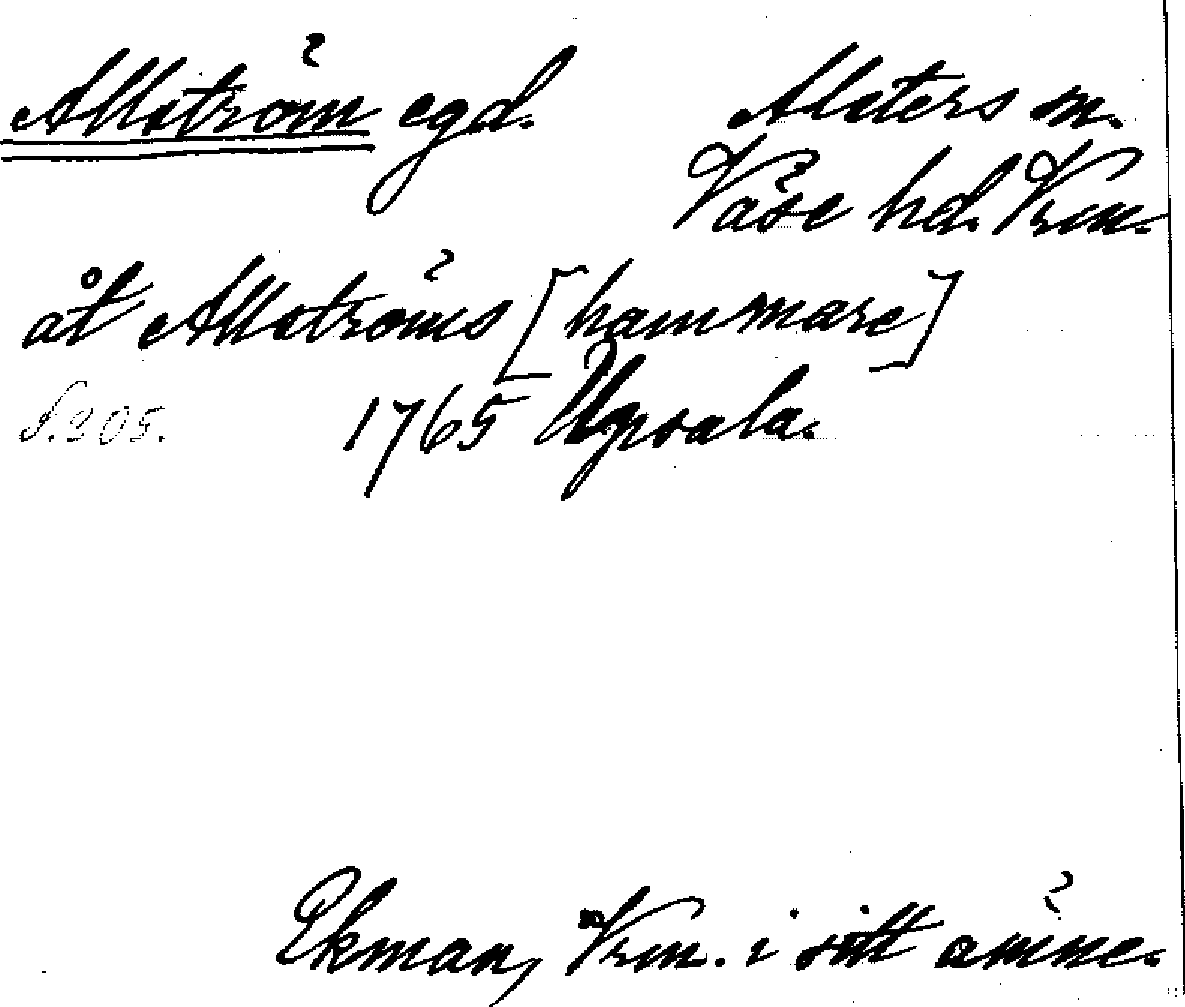 Allström egd.
Alsters sn.
Väse hd. Vrm.
åt Allströms [hammare]
S. 205. 1765 Upsala.
Ekman, Vrm. i sitt ämne.